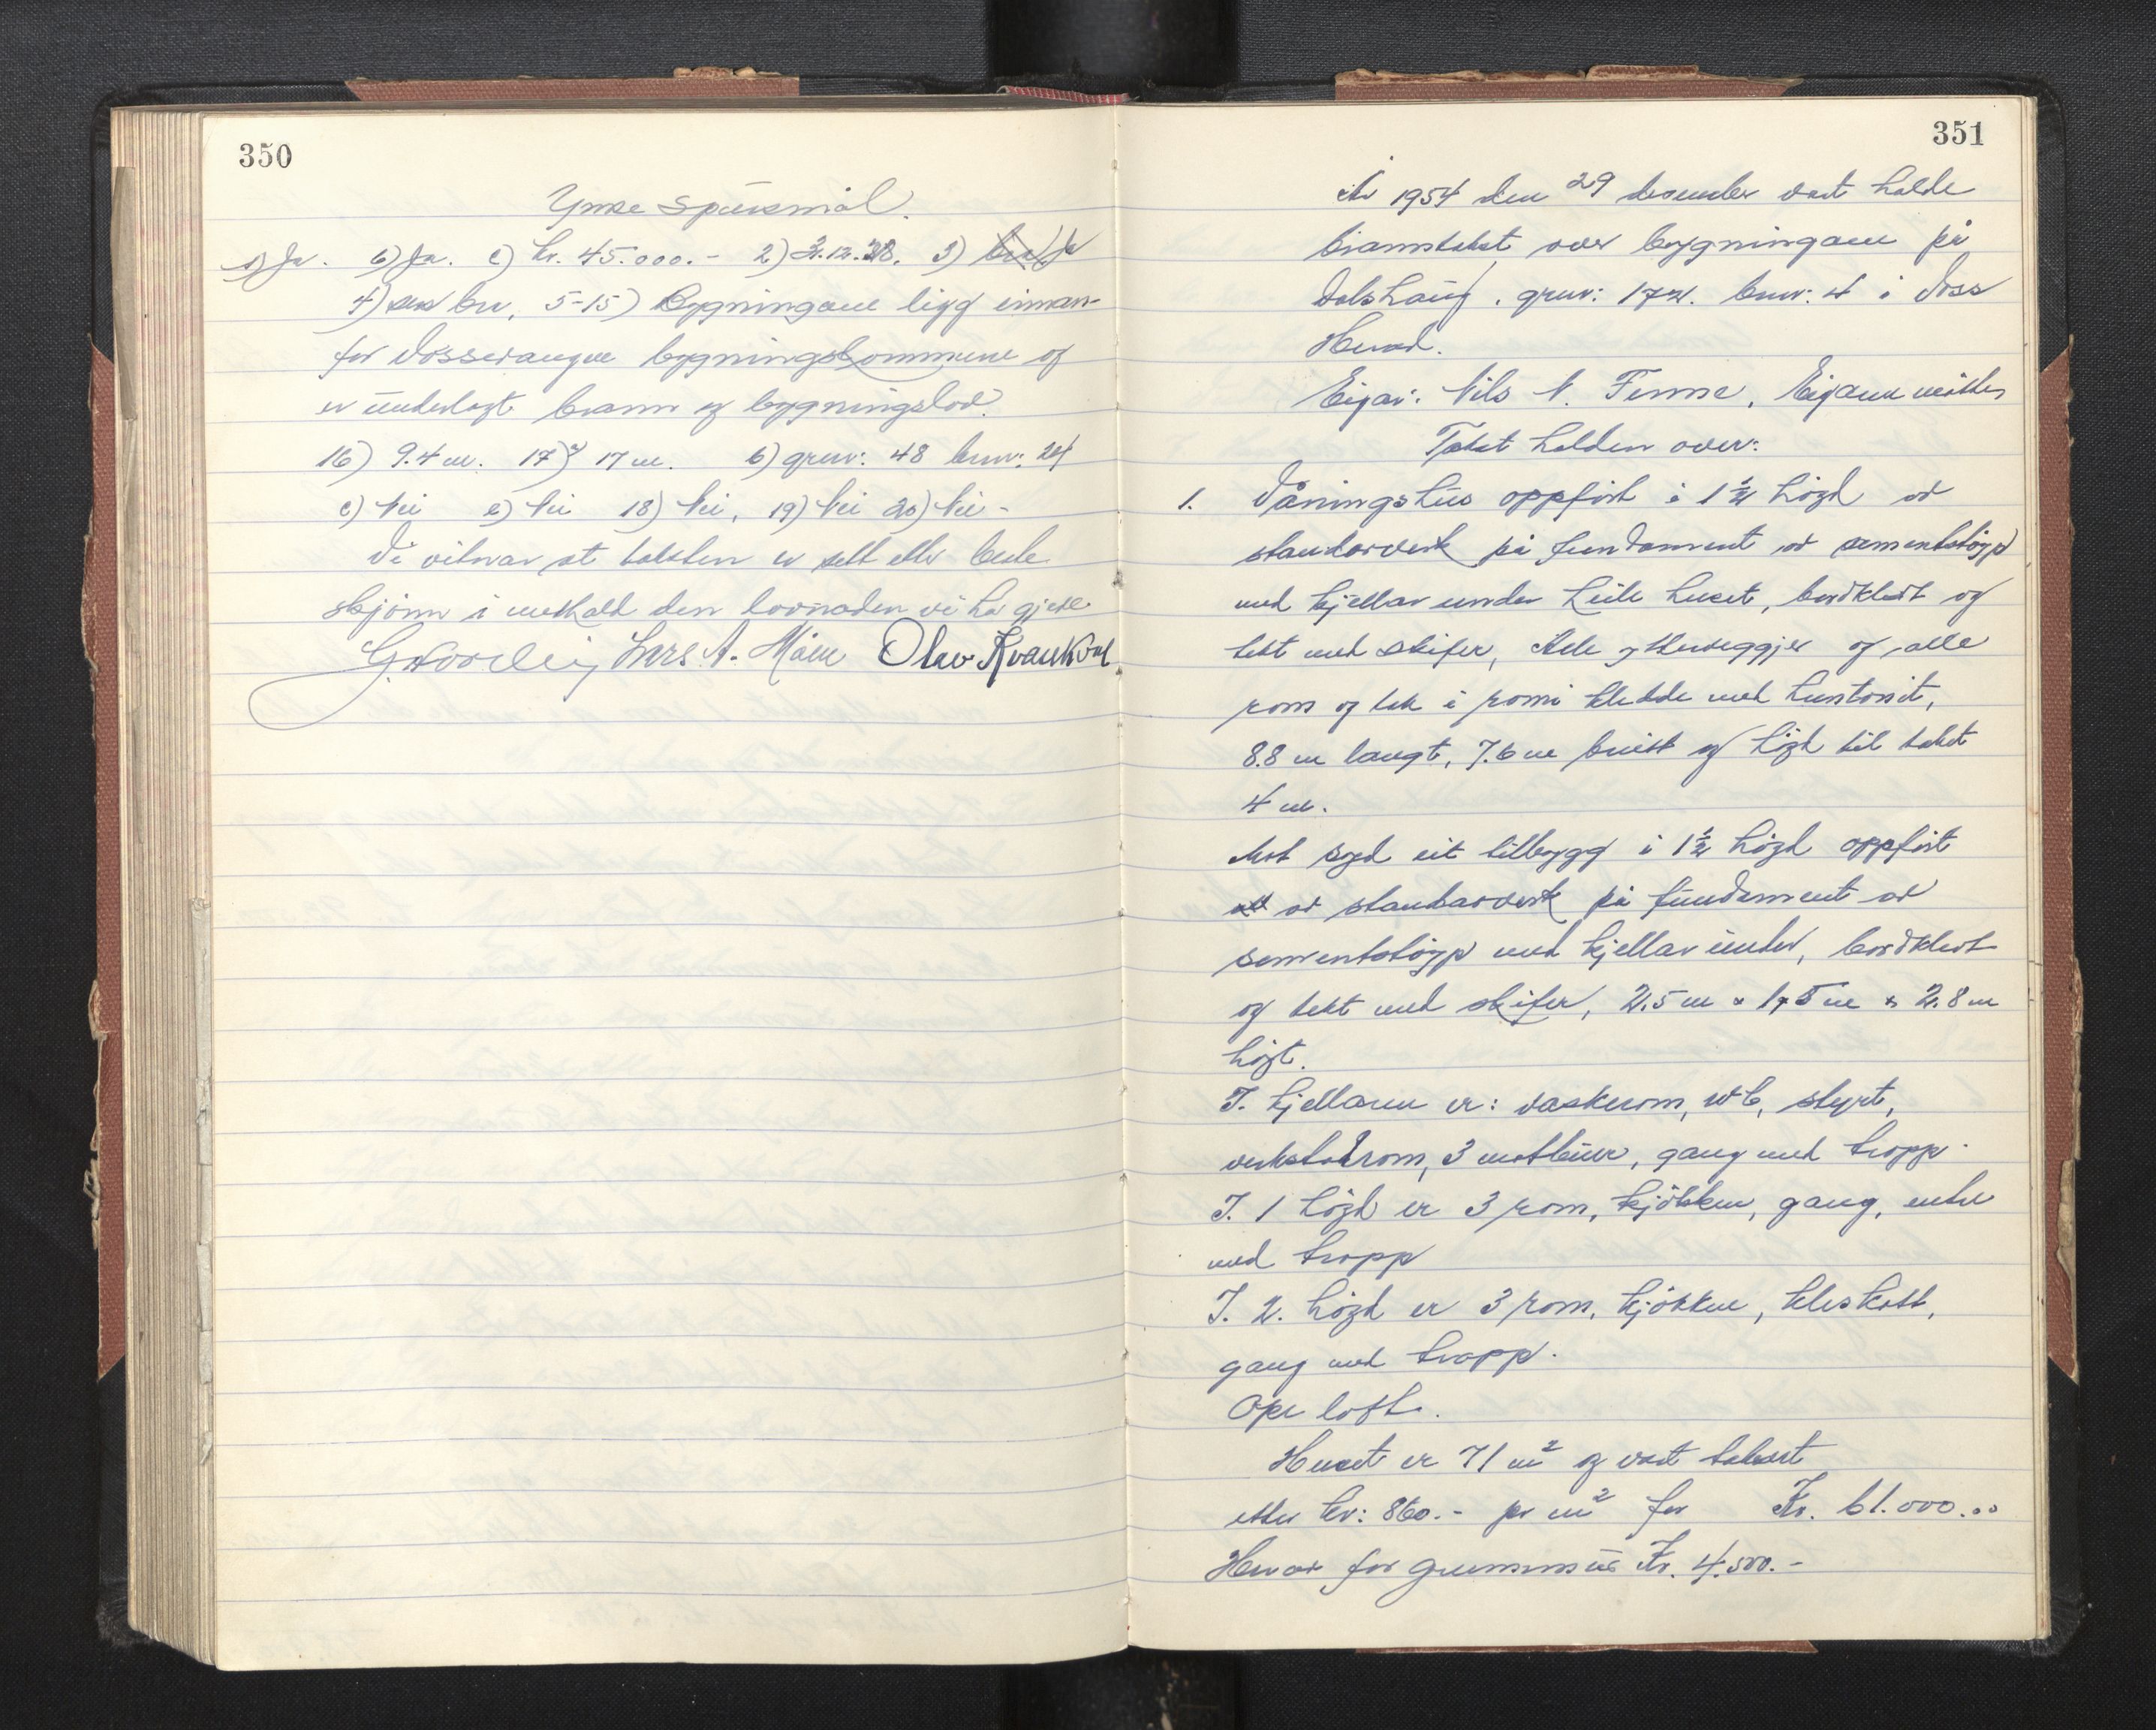 350
Ymse spursmål.
a) Ja. b) Ja. c) kr. 45.000.- 2) 3) Ja
4) bu, 5-15) Bygningane ligg innan-
for Vossevangen bygningskommune og
er underlagt brann og bygningslov.
16) 9.4 m. 17) a) 17 m. b) gnr: 48 bnr: 24
c) Nei e) Nei 18) Nei, 19) Nei 20) Nei -
Vi vitnar at taksten er sett etter beste
skjönn i medhald den lovnaden vi ha gjeve
Lars A. Måen Olav Kvarekval
351
År 1954 den 29 desember vart halde
branntakst over bygningane på
Dalshaug. gnr: 172. bnr: 4 i Voss
Herad.
Eigar: Nils N. Finne, Eigaren möter
Takst halden over:
1. Våningshus oppfört i 1 1/2 högd av
standarverk på fundament av sementstöyp
med kjellar under heile huset, bordkledt og
tekt med skifer, Alle ytterveggjer og alle
rom og tak i romi kledde med huntonit,
8.8 m langt, 7.6 m breitt og högd til taket
4 m.
Mot syd eit tilbygg i 1 1/2 högd oppfört
av standarverk på fundament av
sementstöyp med kjellar under, bordkledt
og tekt med skifer, 2.5 m x 1,5 m x 2.8 m
högt.
I. kjellaren er: vaskerom, WC, styrt,
verkstadrom, 3 matbuer, gang med tropp.
I. 1 högd er 3 rom, kjökken, gang, entre
med tropp
I. 2. högd er 3 rom, kjökken, kleskott,
gang med tropp.
Ope loft.
Huset er 71 m² og vart taksert
etter kr: 860.- pr m² for Kr. 61.000.00
Herav for grunnmur Kr. 4.500.-